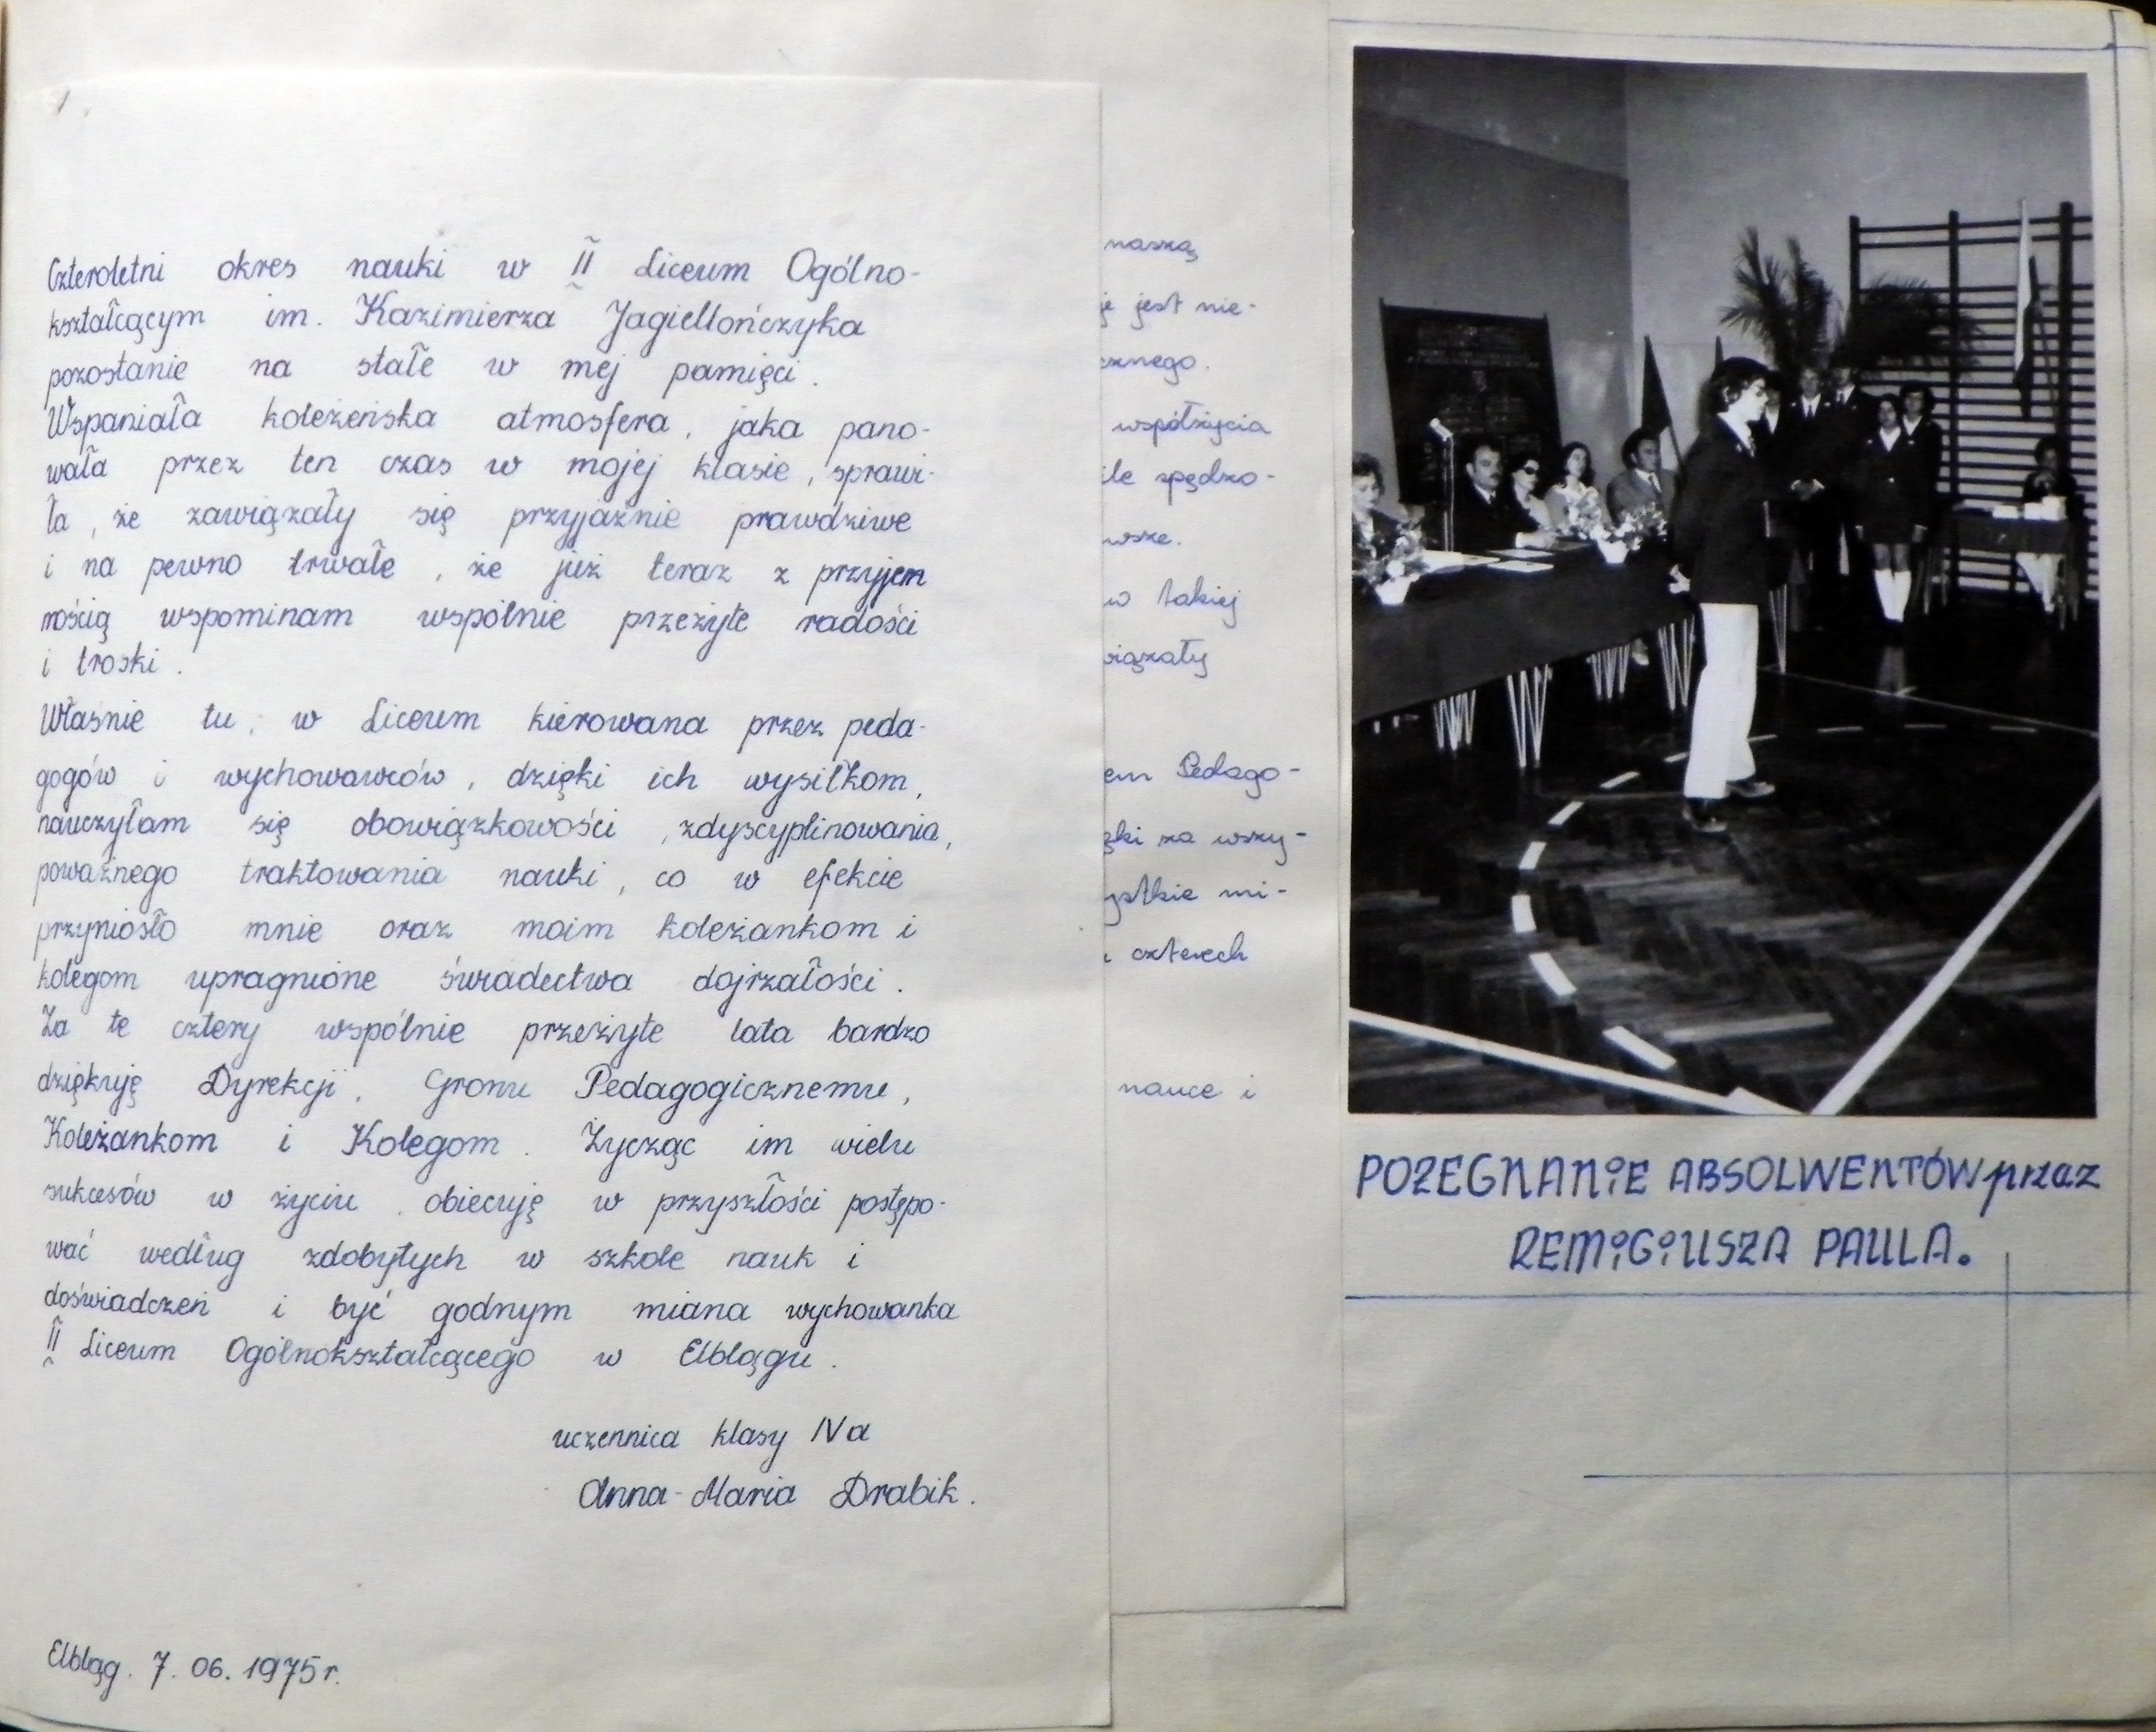 Czteroletni okres nauki w II Liceum Ogólno-
kształcącym im. Kazimierza Jagiellończyka
pozostanie na stałe w mej pamięci.
Wspaniała koleżeńska atmosfera, jaka pano-
wała przez ten czas w mojej klasie, sprawi-
ła, że zawiązały się przyjaźnie prawdziwe
i na pewno trwałe, że już teraz z przyjem
nością wspominam wspólnie przeżyte radości
i troski.
Właśnie tu, w Liceum kierowana przez peda-
gogów i wychowawców, dzięki ich wysiłkom,
nauczyłam się obowiązkowości, zdyscyplinowania,
poważnego traktowania nauki, co w efekcie
przyniosło mnie oraz moim koleżankom i
kolegom upragnione świadectwa dojrzałości.
Za te cztery wspólnie przeżyte lata bardzo
dziękuję Dyrekcji, Gronu Pedagogicznemu,
Koleżankom i Kolegom. Życząc im wielu
sukcesów w życiu, obiecuję w przyszłości postępo-
wać według zdobytych w szkole nauk i
doświadczeń i być godnym miana wychowanka
II Liceum Ogólnokształcącego w Elblągu.
uczennica klasy IVa
Anna-Maria Drabik.
Elbląg. 7. 06. 1975r.
naszą
je jest nie-
cznego.
współżycia
le spędzo-
wsze.
w takiej
wiązały
em Pedago-
ęki za wszy-
ystkie mi-
czterech
nauce i
POŻEGNANIE ABSOLWENTÓW przez
REMIGIUSZA PAULA.